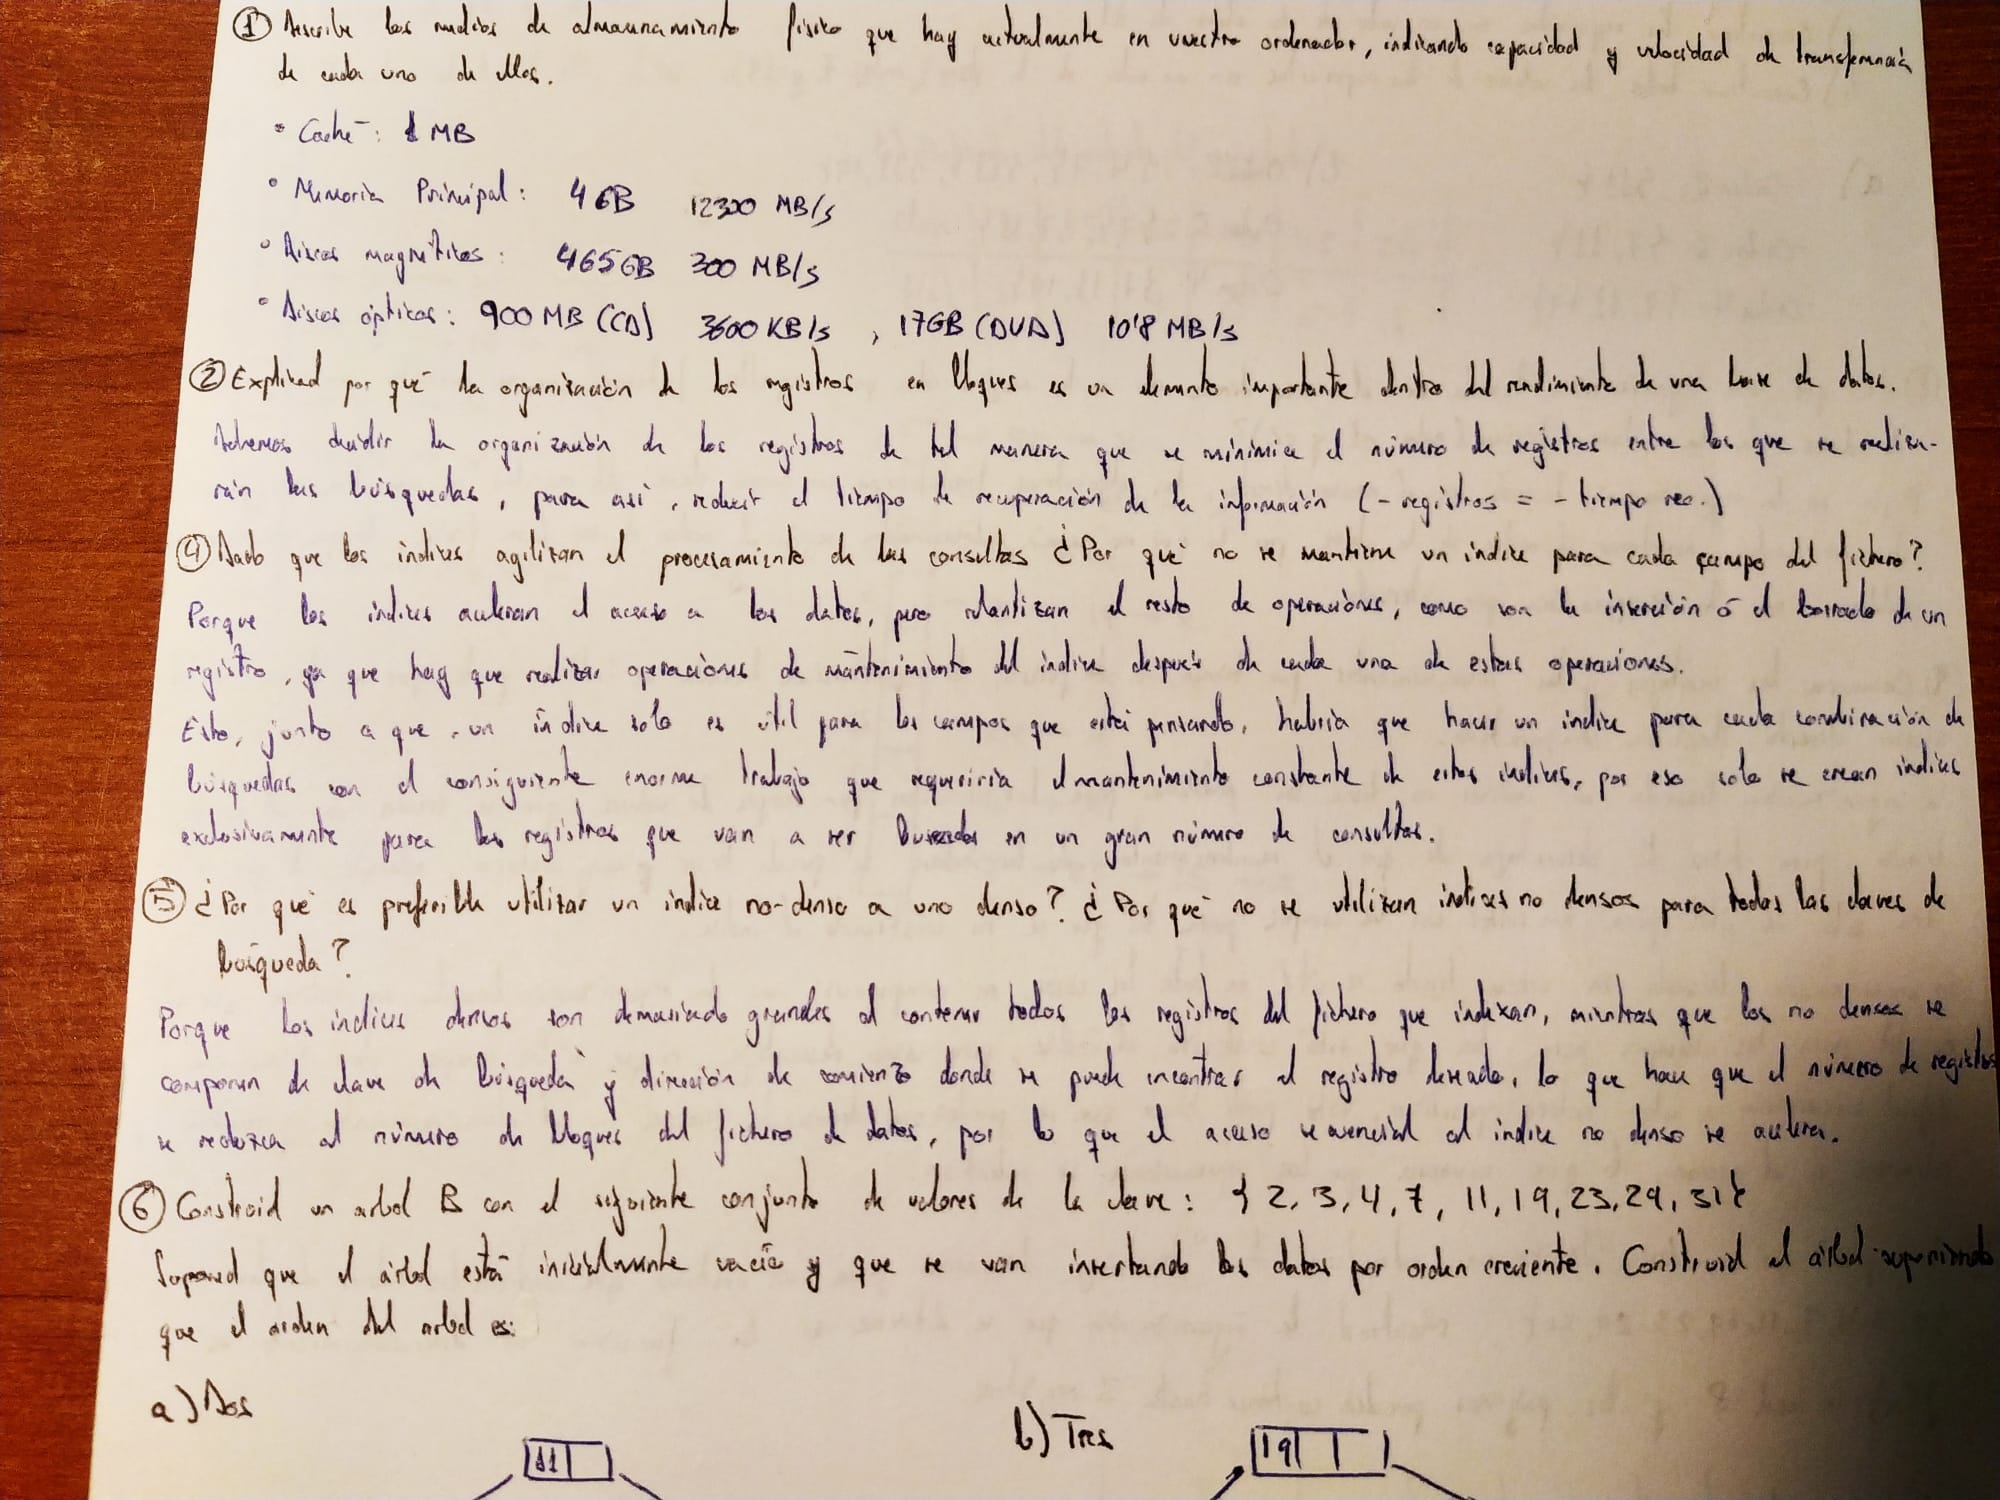 ① Describe los medios de almacenamiento físico que hay actualmente en vuestro ordenador, indicando capacidad y velocidad de transferencia
de cada uno de ellos.
• Caché: 1 MB
• Memoria Principal: 4 GB 12300 MB/s
• Discos magnéticos: 465 GB 300 MB/s
• Discos ópticos: 900 MB (CD) 3600 KB/s , 17GB (DVD) 10'8 MB/s
② Explicad por qué la organización de los registros en bloques es un elemento importante dentro del rendimiento de una base de datos.
Debemos decidir la organización de los registros de tal manera que se minimice el número de registros entre los que se realiza-
rán las búsquedas, para así, reducir el tiempo de recuperación de la información (- registros = - tiempo rec.)
④ Dado que los índices agilizan el procesamiento de las consultas ¿Por qué no se mantiene un índice para cada campo del fichero?
Porque los índices aceleran el acceso a los datos, pero ralentizan el resto de operaciones, como son la inserción ó el borrado de un
registro, ya que hay que realizar operaciones de mantenimiento del índice después de cada una de estas operaciones.
Esto, junto a que, un índice solo es útil para los campos que está pensando, habría que hacer un índice para cada combinación de
búsquedas con el consiguiente enorme trabajo que requeriría el mantenimiento constante de estos índices, por eso solo se crean índices
exclusivamente para los registros que van a ser buscados en un gran número de consultas.
⑤ ¿Por qué es preferible utilizar un índice no-denso a uno denso? ¿Por qué no se utilizan índices no densos para todas las claves de
búsqueda?
Porque los índices densos son demasiado grandes al contener todos los registros del fichero que indexan, mientras que los no densos se
componen de clave de búsqueda y dirección de comienzo donde se puede encontrar el registro deseado, lo que hace que el número de registros
se reduzca al número de bloques del fichero de datos, por lo que el acceso secuencial al índice no denso se acelera.
⑥ Construid un arbol B con el siguiente conjunto de valores de la clave: {2, 3, 4, 7, 11, 19, 23, 29, 31}
Suponed que el árbol está inicialmente vacío y que se van insertando los datos por orden creciente. Construid el árbol suponiendo
que el orden del arbol es:
a) Dos
b) Tres
11
19